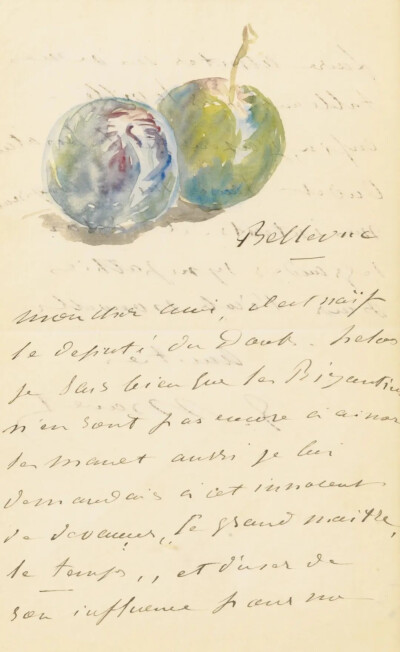 Bellevue
mon cher ami, il est naïf
le député du Doubs. helas
je sais bien que les Bizantins
n'en sont pas encore à aimer
les manet aussi je lui
demandais à cet innocent
de devancer "le grand maitre,
le temps," et d'user de
son influence pour me